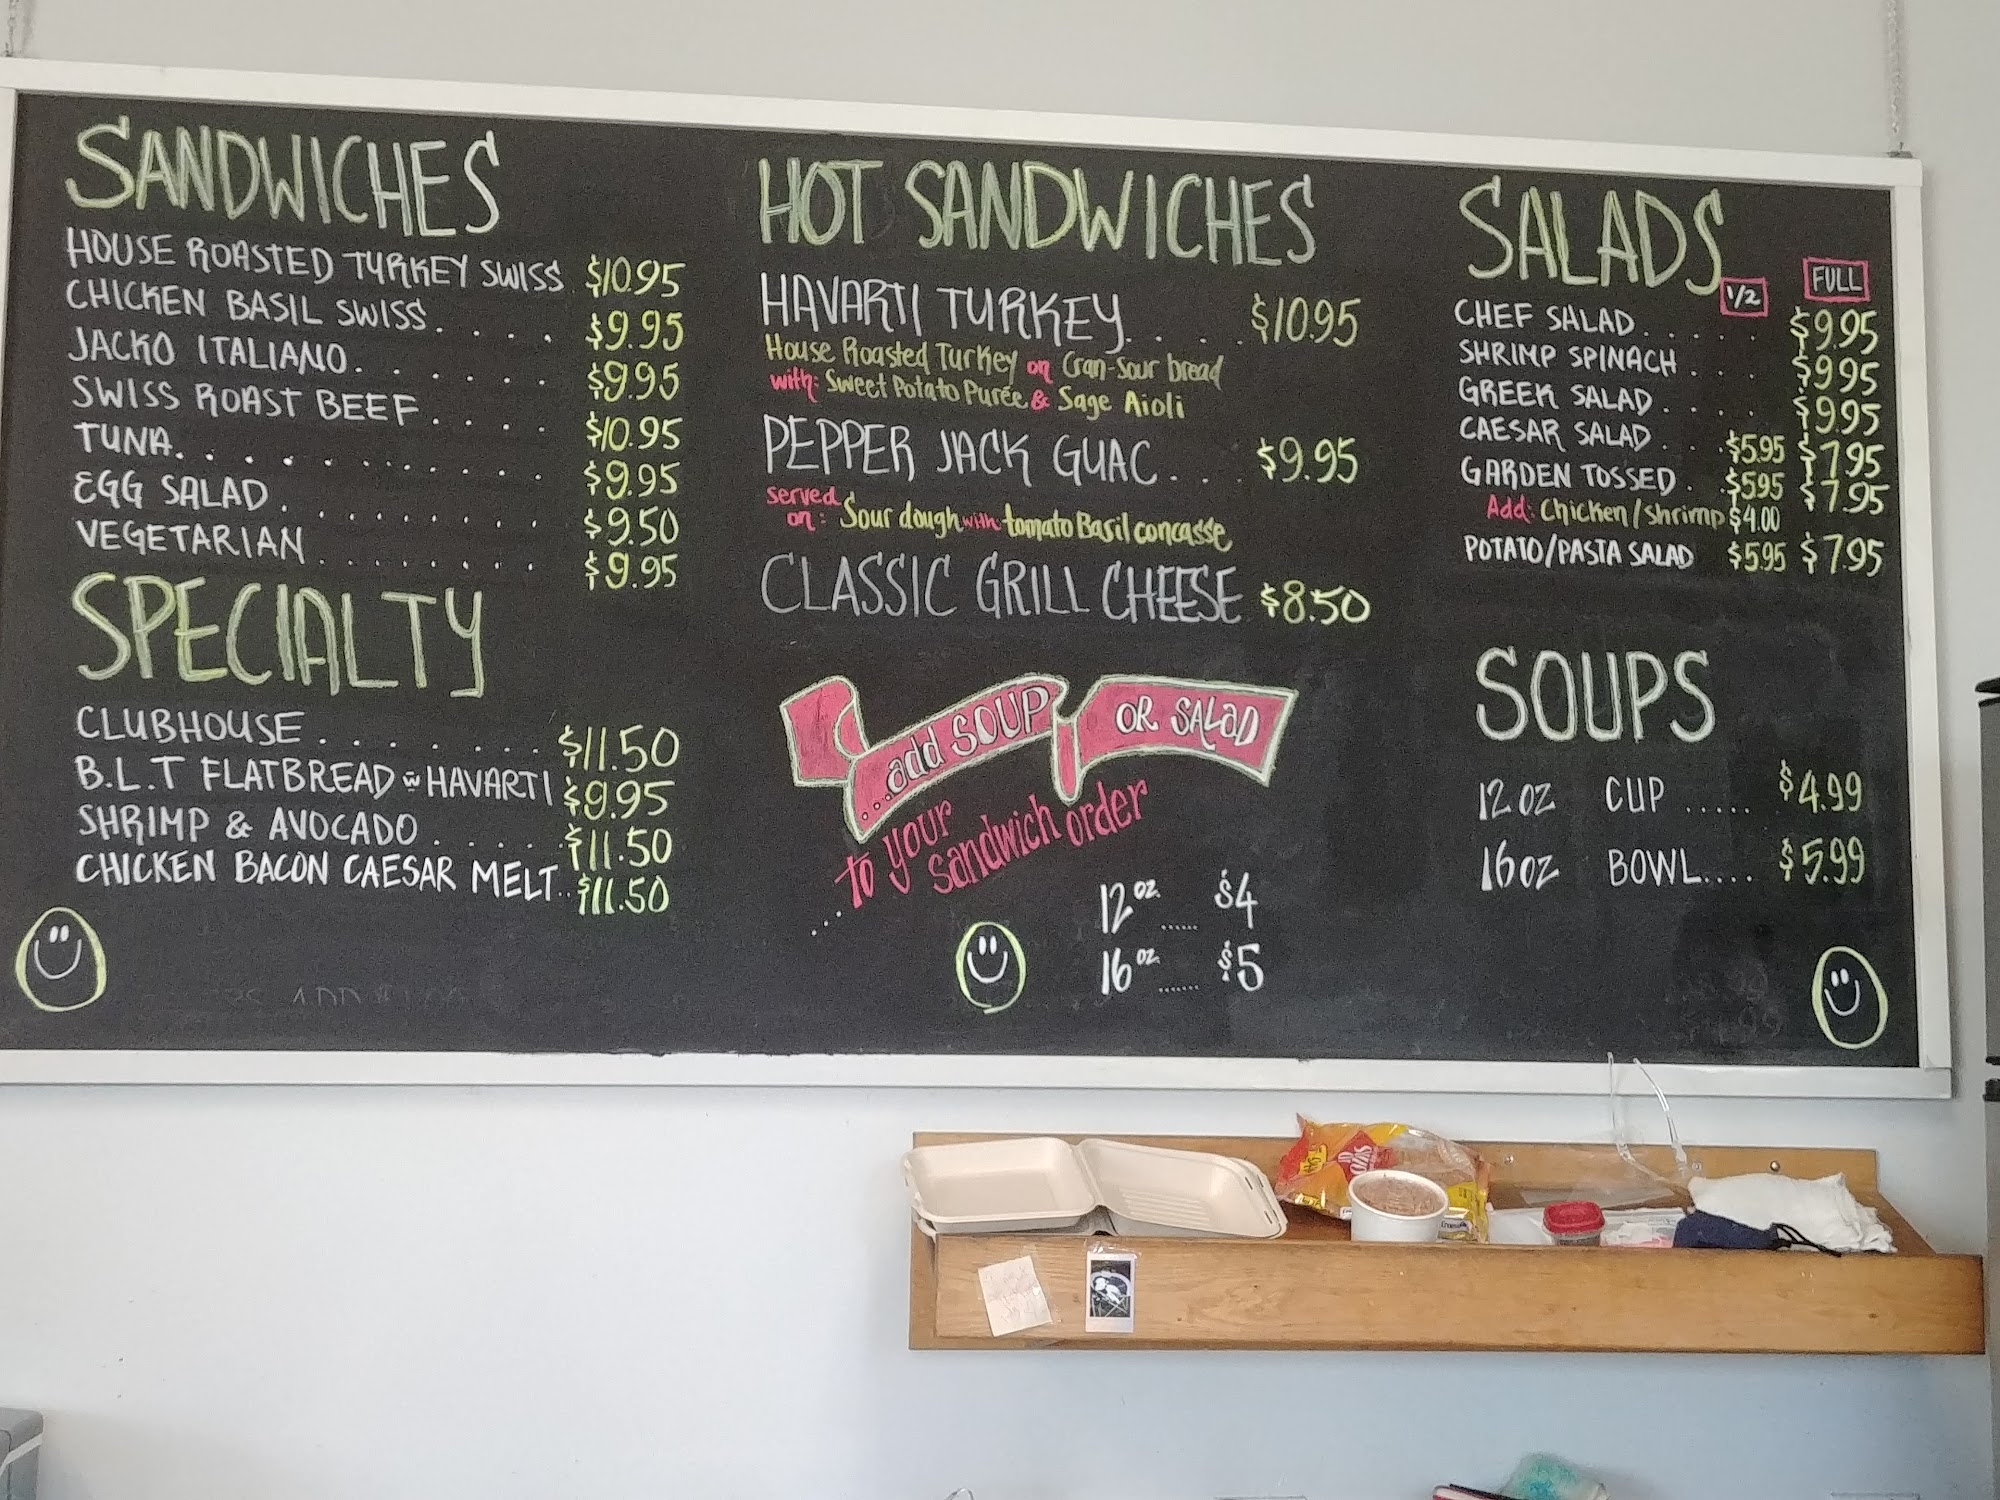 SANDWICHES
HOUSE ROASTED TURKEY SWISS $10.95
CHICKEN BASIL SWISS..... $9.95
JACKO ITALIANO........ $9.95
SWISS ROAST BEEF.... $10.95
TUNA............ $9.95
EGG SALAD......... $9.50
VEGETARIAN........ $9.95
SPECIALTY
CLUBHOUSE........ $11.50
B.L.T FLATBREAD w HAVARTI $9.95
SHRIMP & AVOCADO..... $11.50
CHICKEN BACON CAESAR MELT.. $11.50
HOT SANDWICHES
HAVARTI TURKEY..... $10.95
House Roasted Turkey on Cran-Sour bread
with: Sweet Potato Purée & Sage Aioli
PEPPER JACK GUAC... $9.95
served on: Sour dough with tomato Basil concasse
CLASSIC GRILL CHEESE $8.50
...add SOUP OR SALAD
to your
sandwich order
...
12 oz. ...... $4
16 oz. ...... $5
SALADS
1/2 FULL
CHEF SALAD...... $9.95
SHRIMP SPINACH... $9.95
GREEK SALAD.... $9.95
CAESAR SALAD.. $5.95 $7.95
GARDEN TOSSED. $5.95 $7.95
Add: Chicken/Shrimp $4.00
POTATO/PASTA SALAD $5.95 $7.95
SOUPS
12 OZ CUP ..... $4.99
16 OZ BOWL.... $5.99